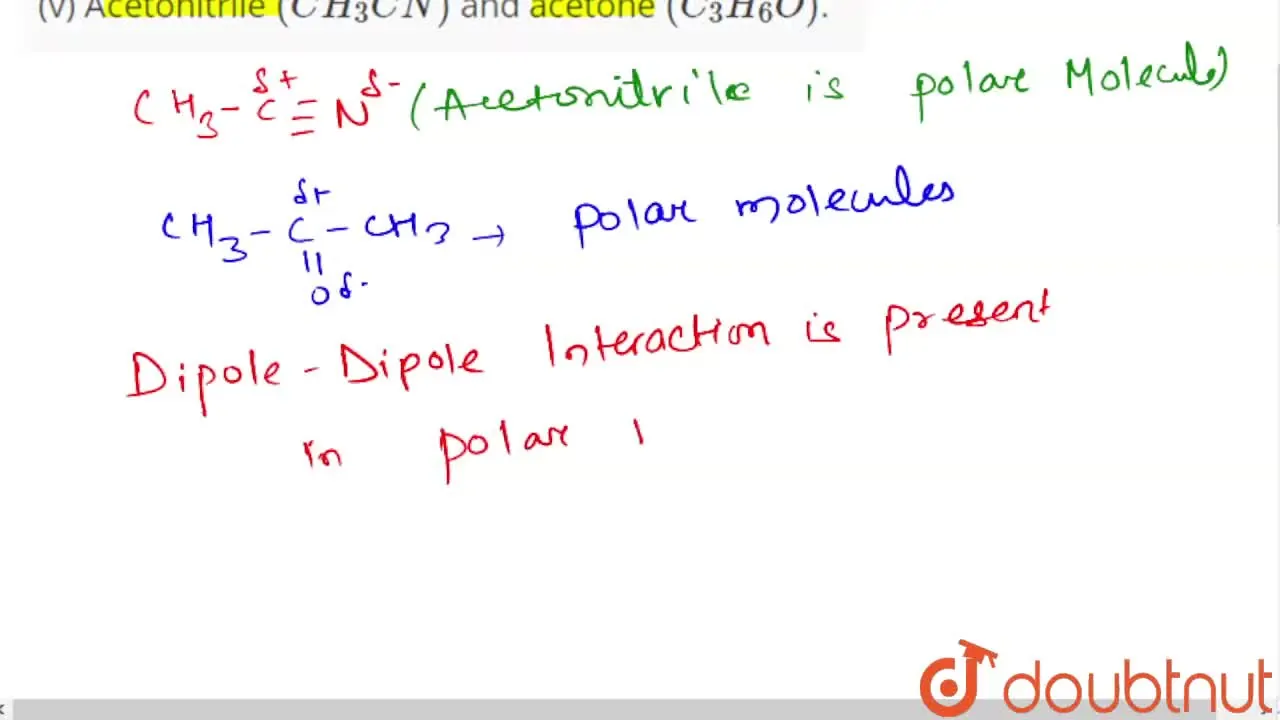 (v) Acetonitrile (CH₃CN) and acetone (C₃H₆O).
δ+ δ-
CH₃-C≡N (Acetonitrile is polar Molecule)
δ+
CH₃-C-CH₃ → polar molecules
||
O δ-
Dipole-Dipole Interaction is present
in polar
doubtnut